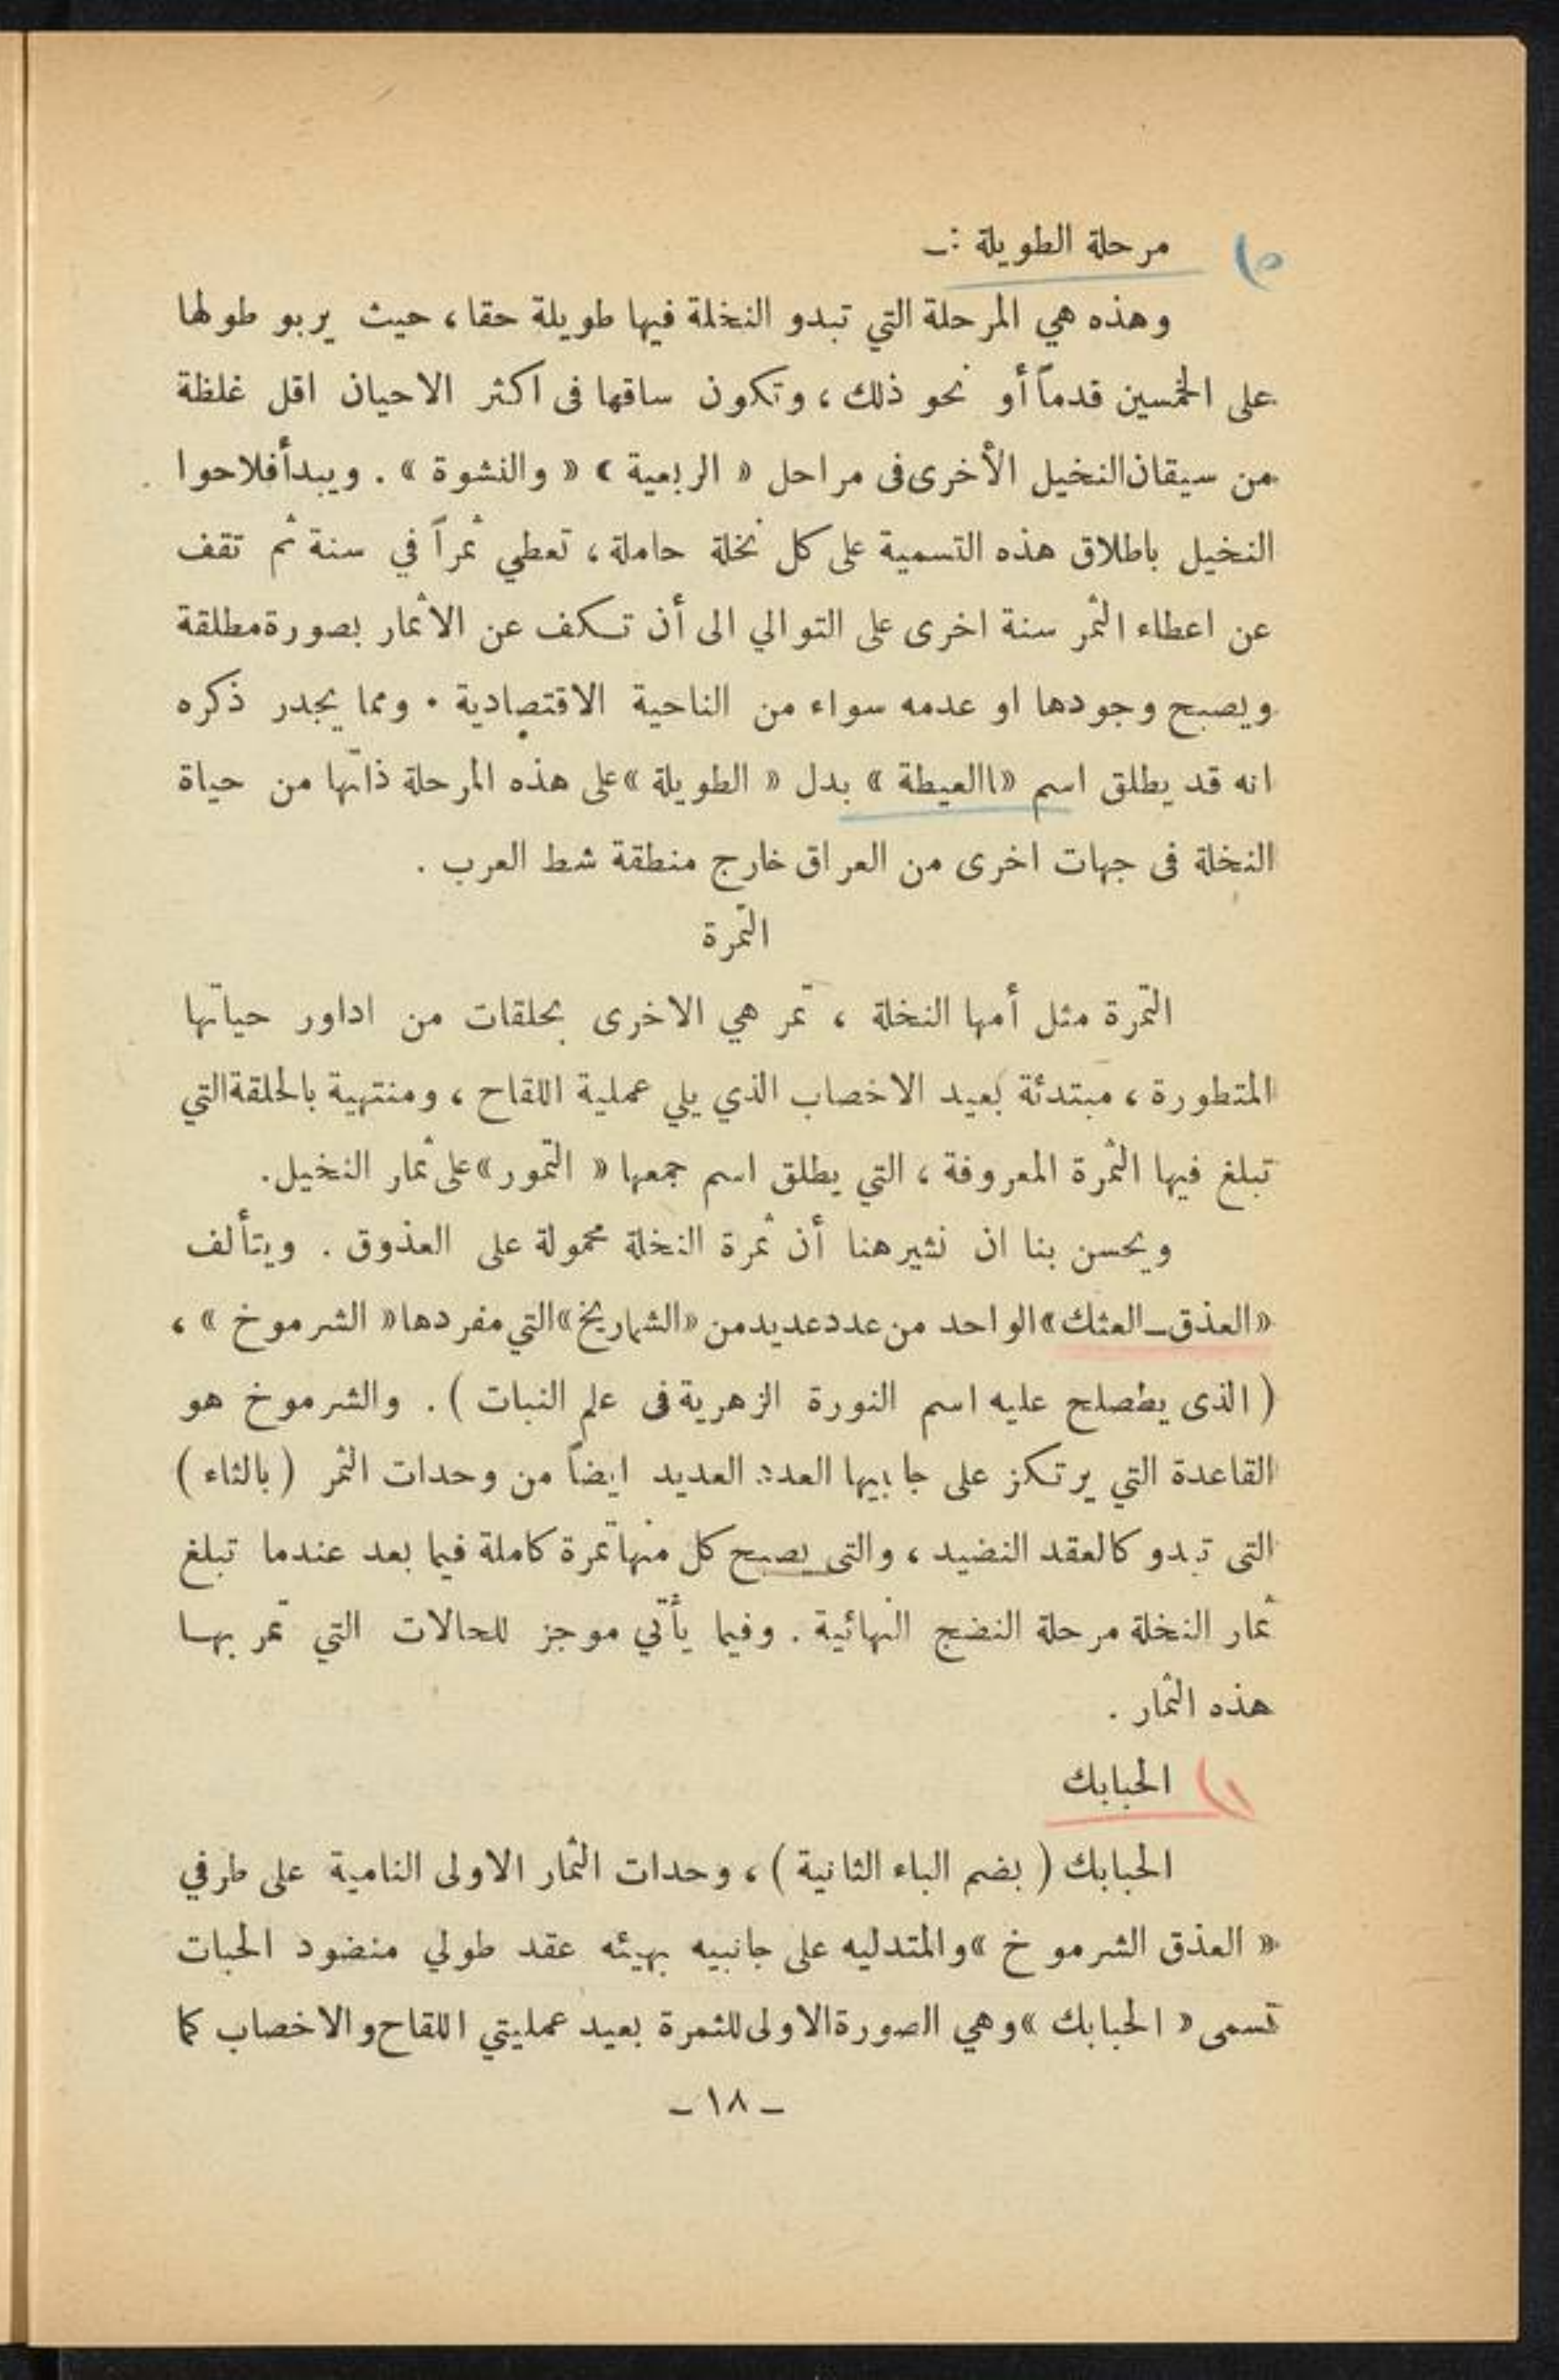 ٥) مرحلة الطويلة :ـ
وهذه هي المرحلة التي تبدو النخلة فيها طويلة حقا ، حيث يربو طولها
على الخمسين قدماً أو نحو ذلك ، وتكون ساقها فى اكثر الاحيان اقل غلظة
من سيقان النخيل الأخرى فى مراحل « الربعية » « والنشوة » . ويبدأ فلاحوا
النخيل باطلاق هذه التسمية على كل نخلة حاملة ، تعطي ثمراً في سنة ثم تقف
عن اعطاء الثمر سنة اخرى على التوالي الى أن تكف عن الاثمار بصورة مطلقة
ويصبح وجودها او عدمه سواء من الناحية الاقتصادية . ومما يجدر ذكره
انه قد يطلق اسم «االعيطة » بدل « الطويلة » على هذه المرحلة ذاتها من حياة
النخلة فى جهات اخرى من العراق خارج منطقة شط العرب .
التمرة
التمرة مثل أمها النخلة ، تمر هي الاخرى بحلقات من اداور حياتها
المتطورة ، مبتدئة بعيد الاخصاب الذي يلي عملية اللقاح ، ومنتهية بالحلقة التي
تبلغ فيها الثمرة المعروفة ، التي يطلق اسم جمعها « التمور » على ثمار النخيل.
ويحسن بنا ان نثير هنا أن ثمرة النخلة محمولة على العذوق . ويتألف
«العذق ـ العثك» الواحد من عدد عديد من «الشماريخ» التي مفردها « الشرموخ » ،
( الذى يطصلح عليه اسم النورة الزهرية فى علم النبات ) . والشرموخ هو
القاعدة التي يرتكز على جا بيها العدد العديد ايضاً من وحدات الثمر ( بالثاء )
التى تبدو كالعقد النضيد ، والتى يصبح كل منها تمرة كاملة فيما بعد عندما تبلغ
ثمار النخلة مرحلة النضج النهائية . وفيما يأتي موجز للحالات التي تمر بهـا
هذه الثمار .
١) الحبابك
الحبابك ( بضم الباء الثانية ) ، وحدات الثمار الاولى النامية على طرفي
« العذق الشرمو خ » والمتدليه على جانبيه بهيئه عقد طولي منضود الحبات
تسمى « الحبابك » وهي الصورة الاولى للثمرة بعيد عمليتي اللقاح والاخصاب كما
ـ ١٨ ـ